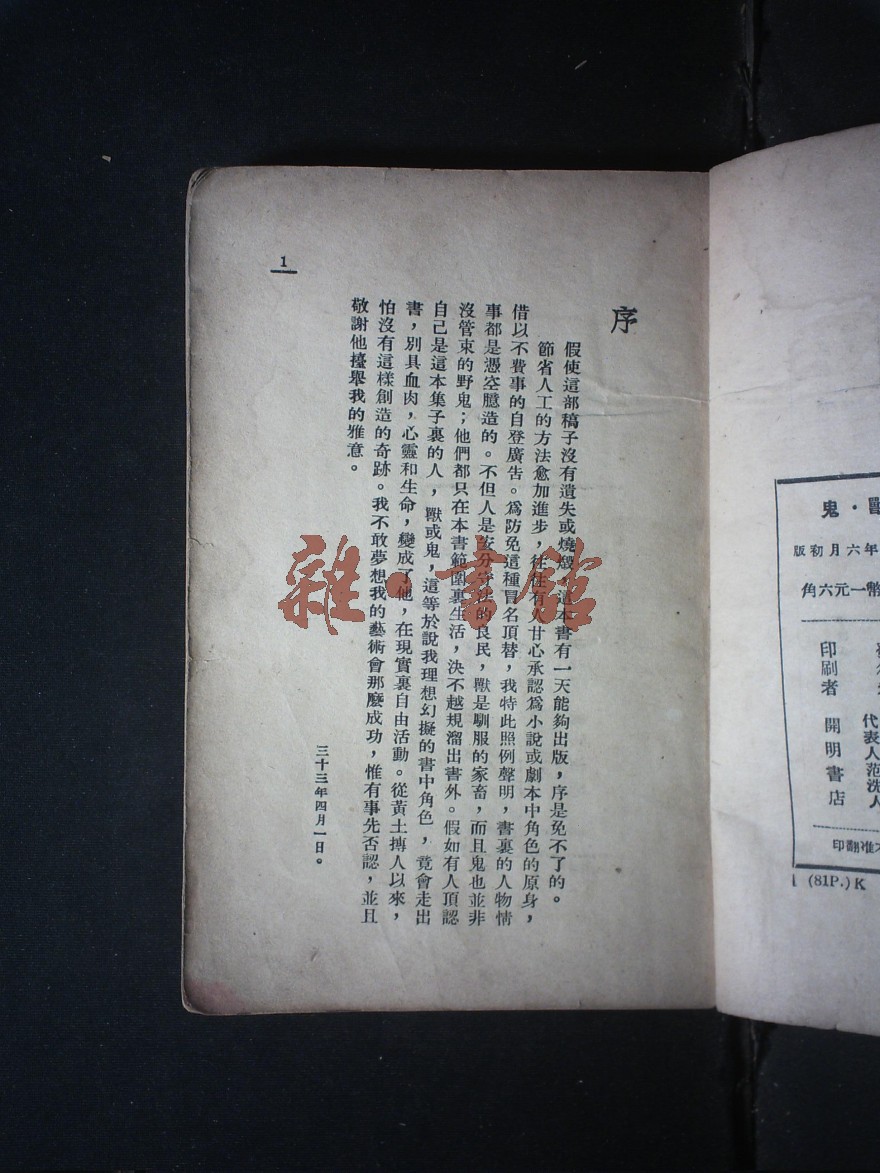 序
假使這部稿子沒有遺失或燒燬，這本書有一天能夠出版，序是免不了的。
節省人工的方法愈加進步，往往有人甘心承認爲小說或劇本中角色的原身，
借以不費事的自登廣告。爲防免這種冒名頂替，我特此照例聲明，書裏的人物情
事都是憑空臆造的。不但人是安分守法的良民，獸是馴服的家畜，而且鬼也並非
沒管束的野鬼；他們都只在本書範圍裏生活，決不越規溜出書外。假如有人頂認
自己是這本集子裏的人，獸或鬼，這等於說我理想幻擬的書中角色，竟會走出
書，別具血肉，心靈和生命，變成了他，在現實裏自由活動。從黃土摶人以來，
怕沒有這樣創造的奇跡。我不敢夢想我的藝術會那麼成功，惟有事先否認，並且
敬謝他擡舉我的雅意。
三十三年四月一日。
1
雜·書館
鬼·獸
版初月六年
角六元一幣
印刷者 開明書店
代表人范洗人
印翻准不
(81P.) K